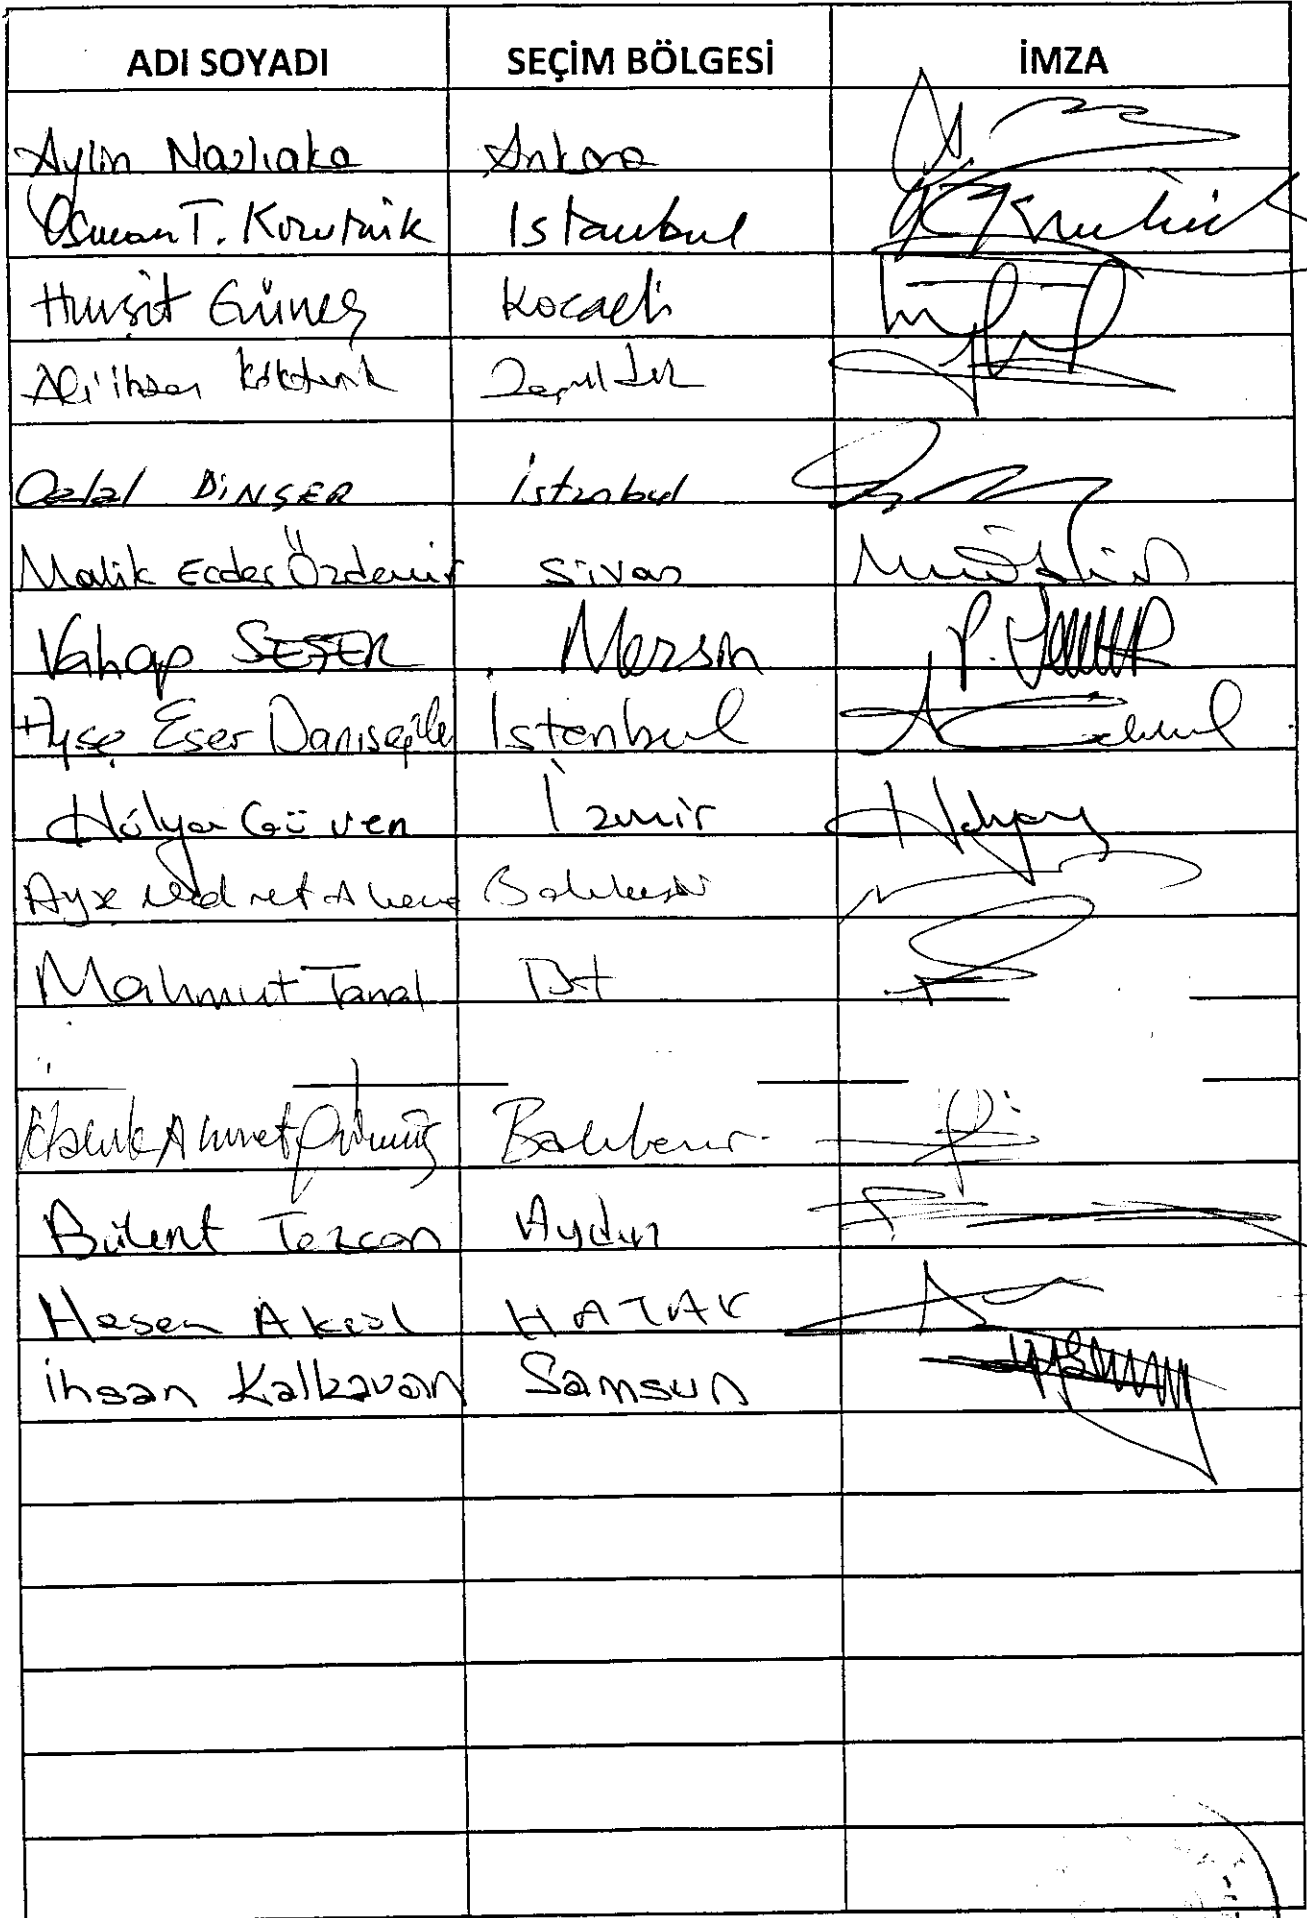 ADI SOYADI SEÇİM BÖLGESİ İMZA
Aylin Nazlıaka Ankara
Osman T. Korutürk Istanbul
Hurşit Güneş Kocaeli
Ali İhsan Köktürk Zonguldak
Celal DİNÇER İstanbul
Malik Ecder Özdemir Sivas
Vahap SEÇER Mersin
Ayşe Eser Danışoğlu İstanbul
Hülya Güven İzmir
Ayşe Nedret Akova Balıkesir
Mahmut Tanal İst
Haluk Ahmet Gümüş Balıkesir
Bülent Tezcan Aydın
Hasan Akgöl HATAY
İhsan Kalkavan Samsun